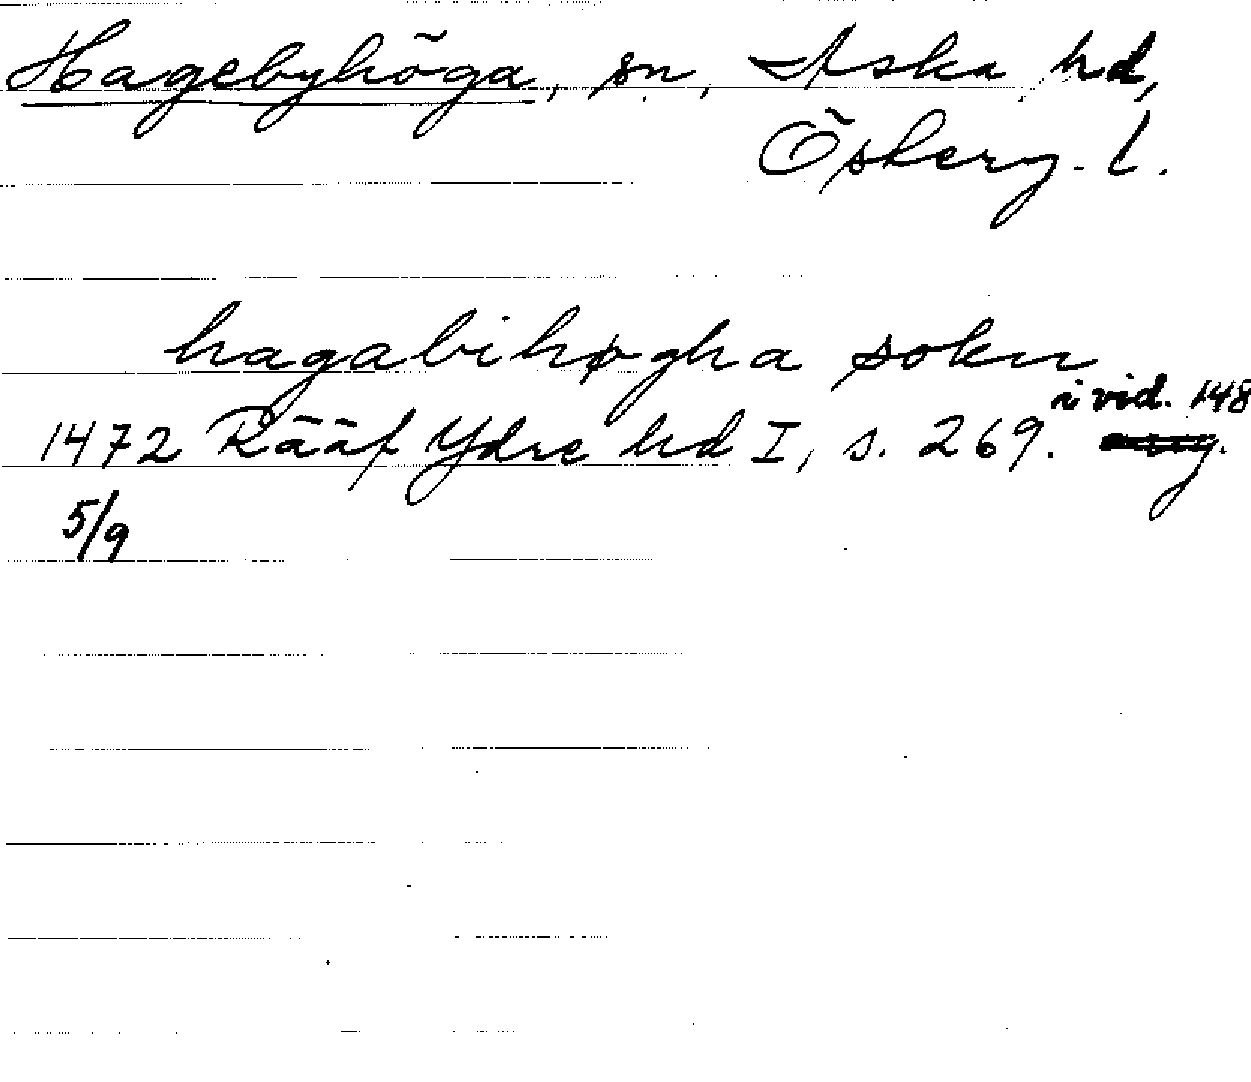 Hagebyhöga, sn, Aska hd,
Österg. l.
hagabihøgha sokn
i vid. 148
1472 Rääf Ydre hd I, s. 269.
5/9